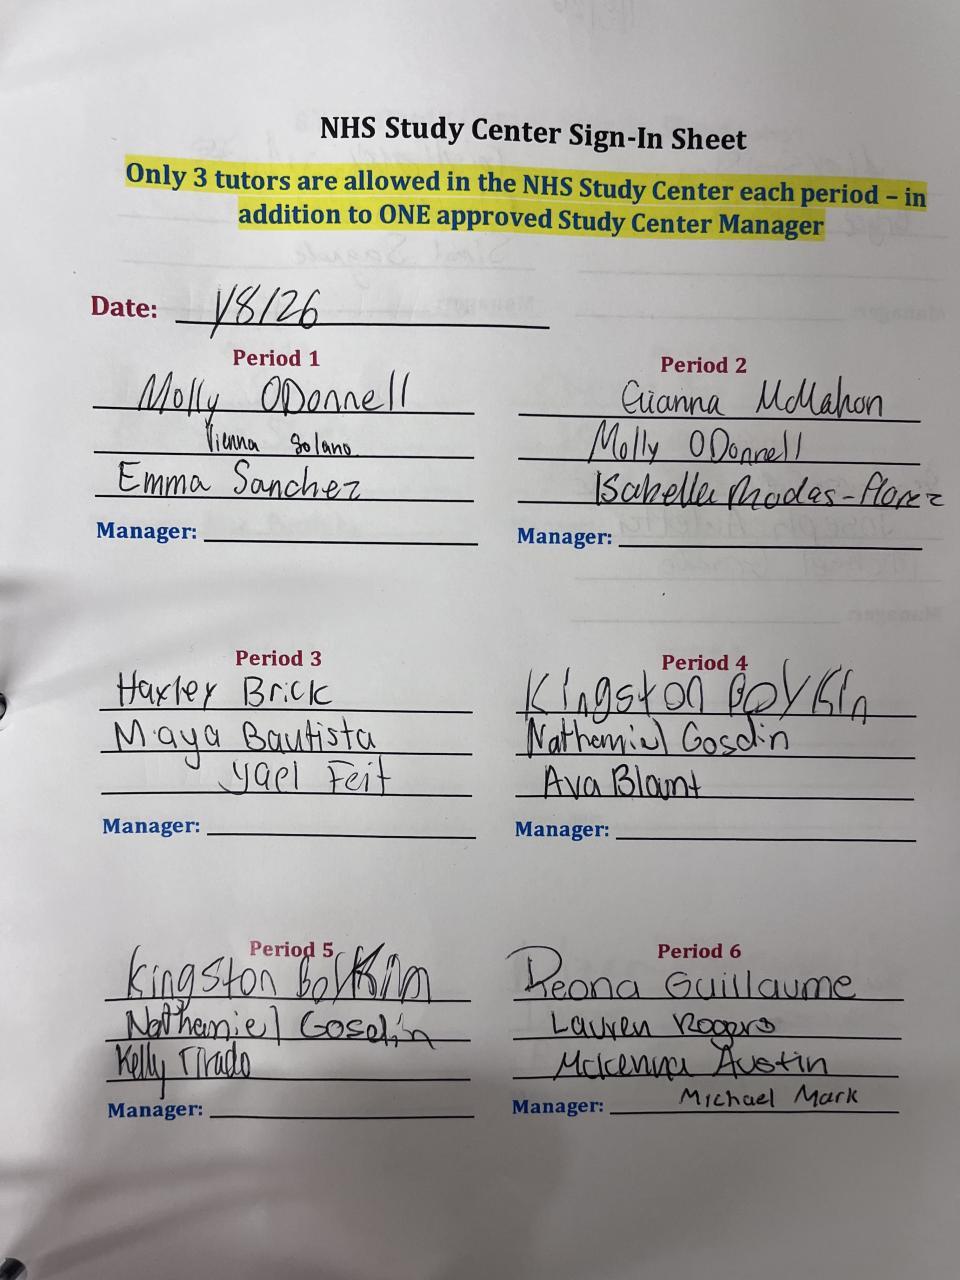 NHS Study Center Sign-In Sheet
Only 3 tutors are allowed in the NHS Study Center each period – in
addition to ONE approved Study Center Manager
Date: 1/8/26
Period 1
Molly ODonnell
Vienna Solano
Emma Sanchez
Manager:
Period 2
Gianna McMahon
Molly ODonnell
Isabella Rhodas-Florez
Manager:
Period 3
Haxley Brick
Maya Bautista
Yael Feit
Manager:
Period 4
Kingston Boykin
Nathaniel Gosdin
Ava Blamt
Manager:
Period 5
Kingston Boykin
Nathaniel Gosdin
Kelly Tirado
Manager:
Period 6
Deona Guillaume
Lauren Rogers
Mckenna Austin
Manager: Michael Mark